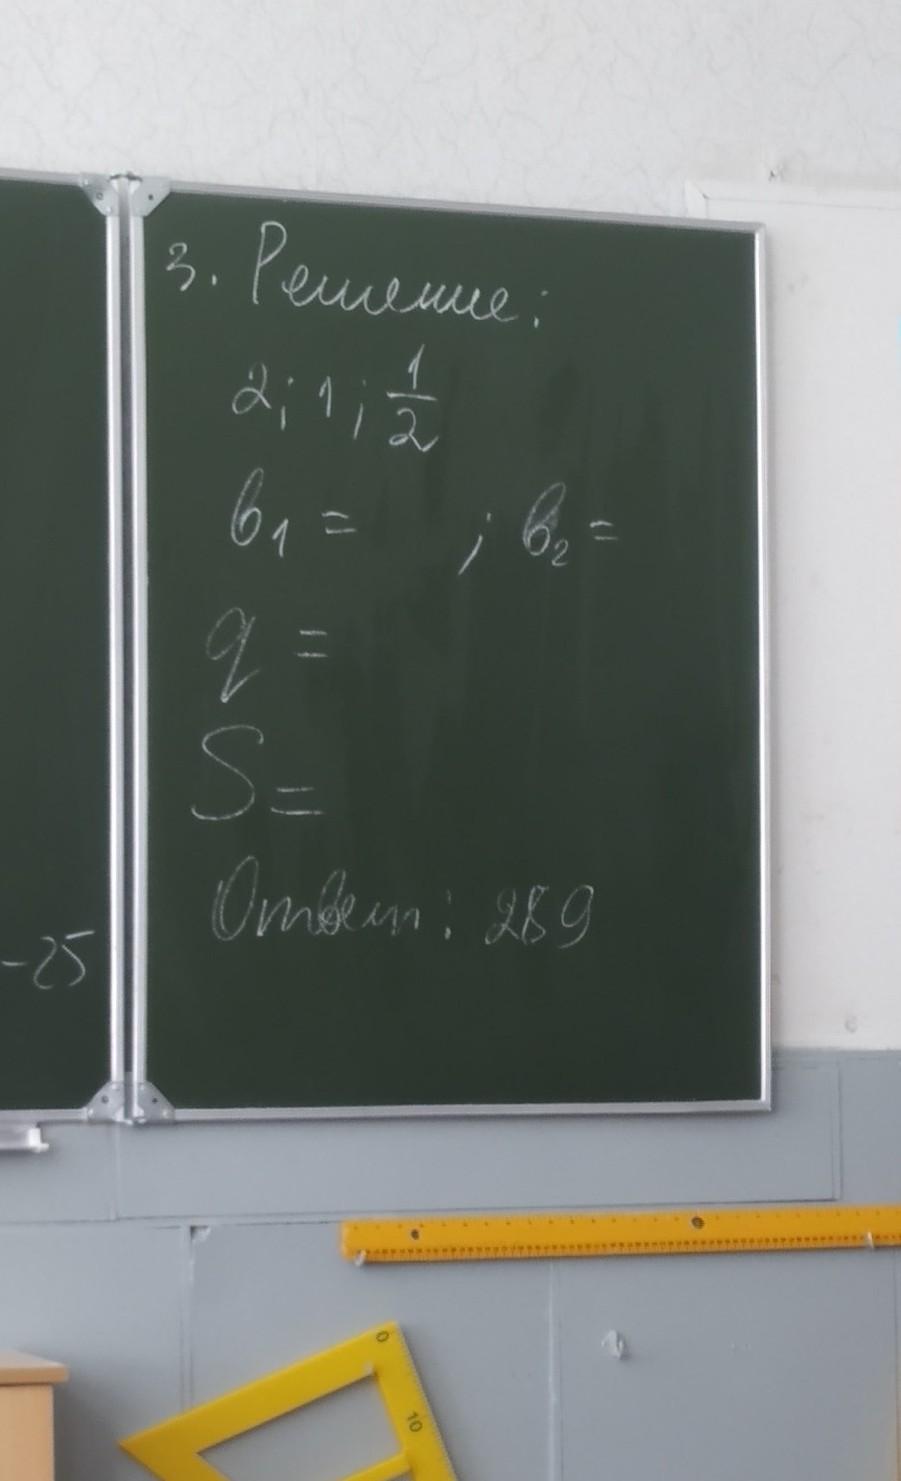 3. Решение:
2; 1; 1/2
b1 = ; b2 =
q =
S =
Ответ: 289
-25
0
10